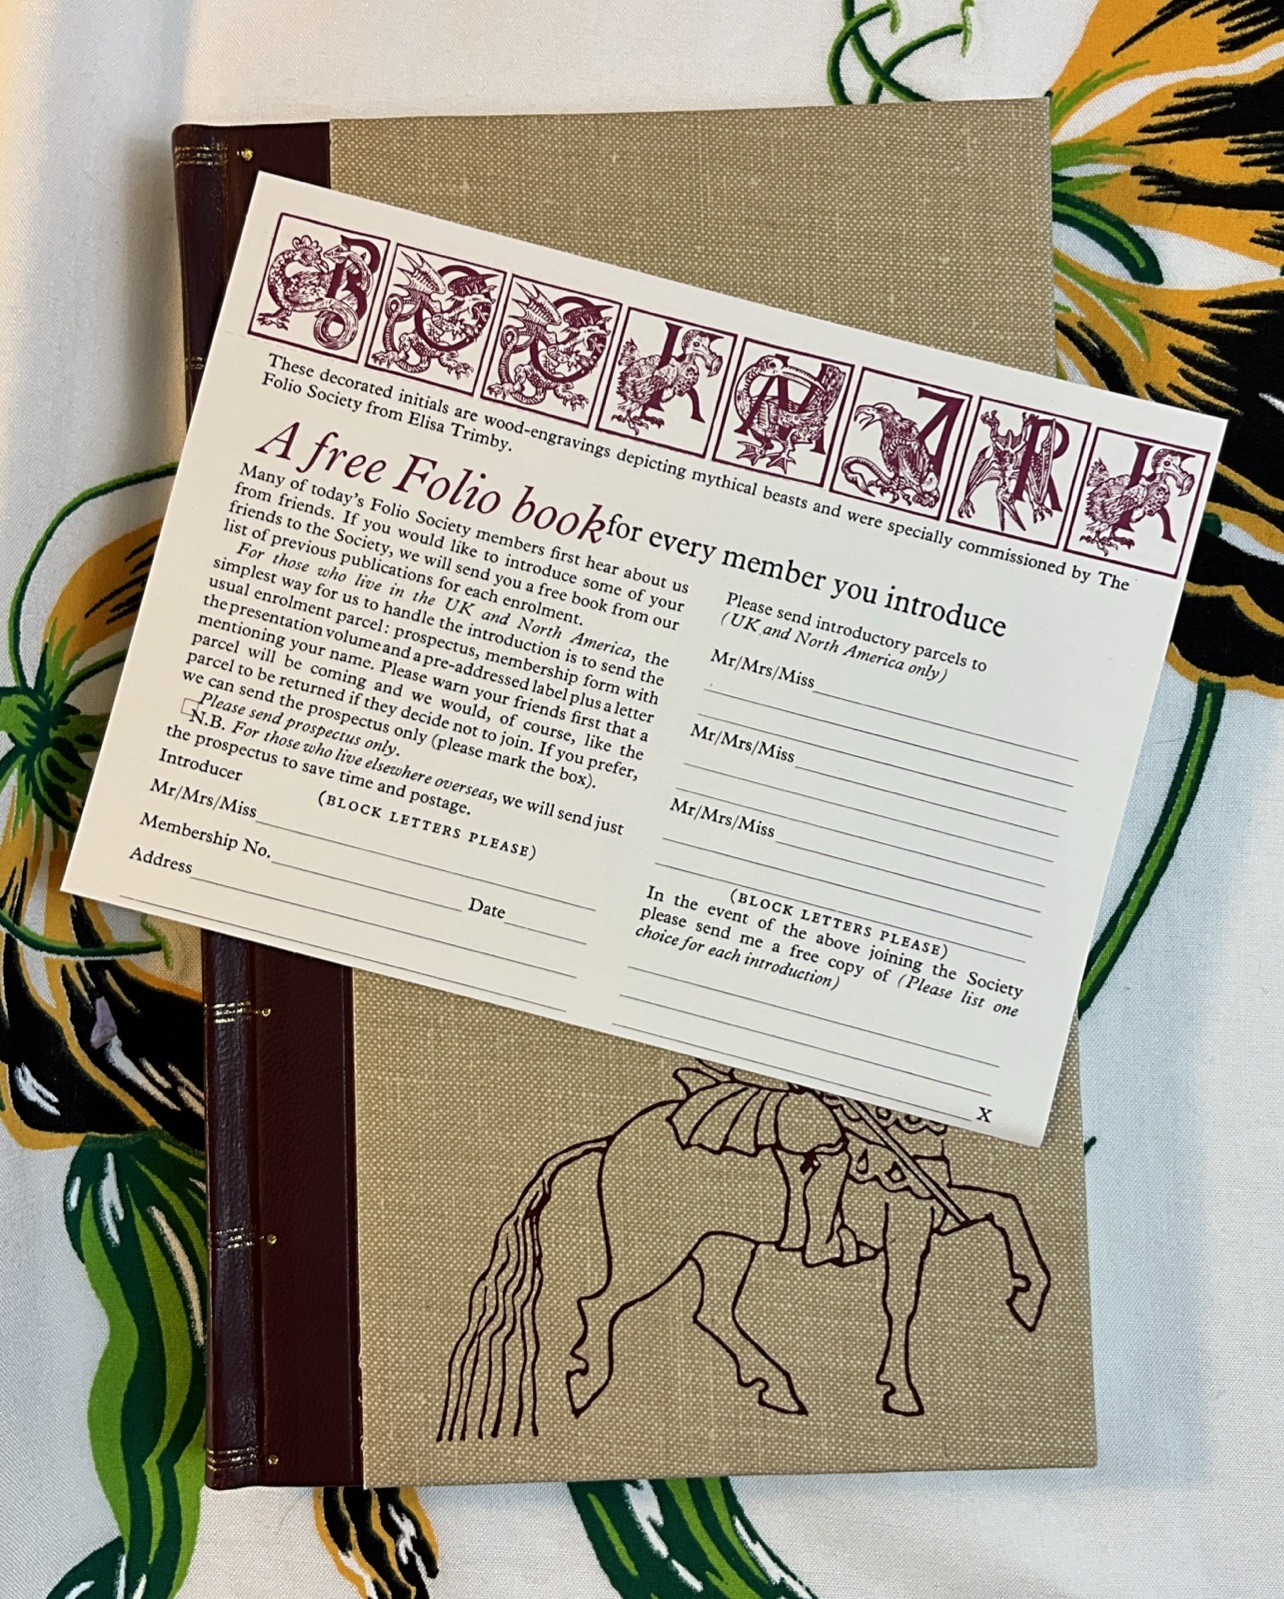 BOOKMARK
These decorated initials are wood-engravings depicting mythical beasts and were specially commissioned by The
Folio Society from Elisa Trimby.
A free Folio book for every member you introduce
Many of today's Folio Society members first hear about us
from friends. If you would like to introduce some of your
friends to the Society, we will send you a free book from our
list of previous publications for each enrolment.
For those who live in the UK and North America, the
simplest way for us to handle the introduction is to send the
usual enrolment parcel: prospectus, membership form with
the presentation volume and a pre-addressed label plus a letter
mentioning your name. Please warn your friends first that a
parcel will be coming and we would, of course, like the
parcel to be returned if they decide not to join. If you prefer,
we can send the prospectus only (please mark the box).
Please send prospectus only.
N.B. For those who live elsewhere overseas, we will send just
the prospectus to save time and postage.
Introducer
(BLOCK LETTERS PLEASE)
Mr/Mrs/Miss
Membership No.
Date
Address
Please send introductory parcels to
(UK and North America only)
Mr/Mrs/Miss
Mr/Mrs/Miss
Mr/Mrs/Miss
(BLOCK LETTERS PLEASE)
In the event of the above joining the Society
please send me a free copy of (Please list one
choice for each introduction)
X